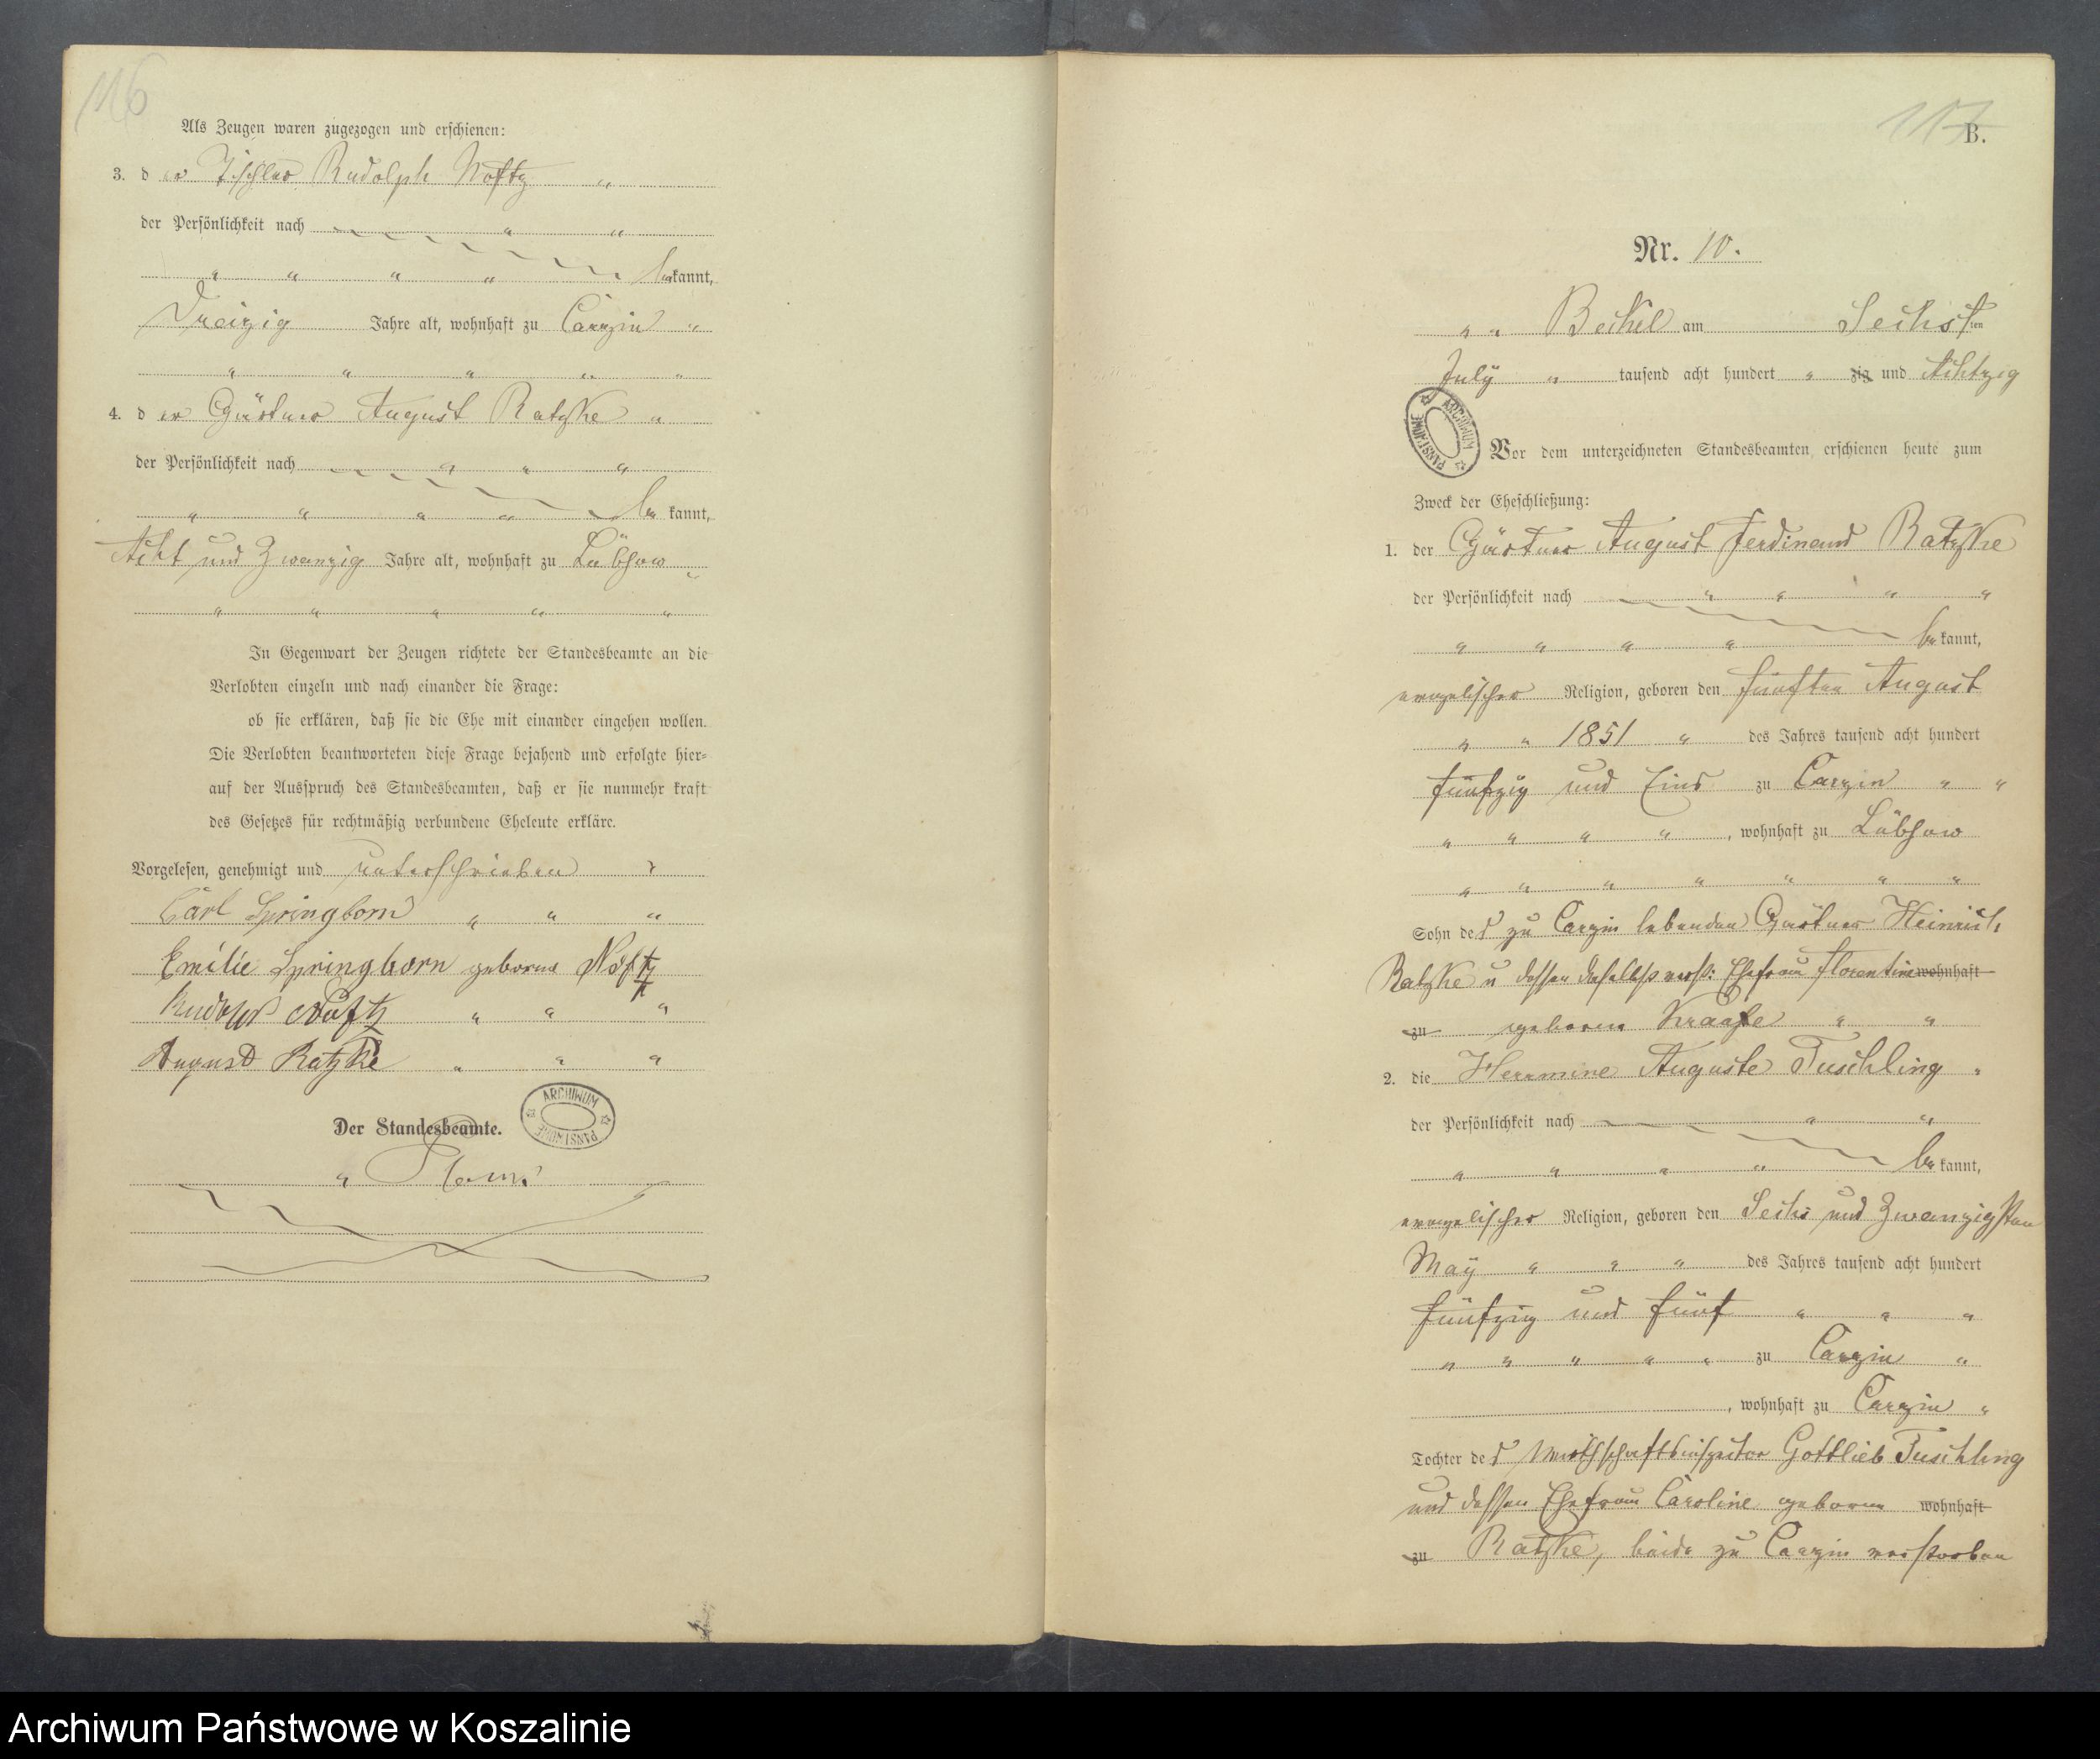 116
Als Zeugen waren zugezogen und erschienen:
3. der Tischler Rudolph Noftz "
der Persönlichkeit nach " "
" " " " bekannt,
Dreizig Jahre alt, wohnhaft zu Carzin "
" " " " "
4. der Gärtner August Ratzke "
der Persönlichkeit nach " " "
" " " " bekannt,
Acht und Zwanzig Jahre alt, wohnhaft zu Lübsow "
" " " " "
In Gegenwart der Zeugen richtete der Standesbeamte an die
Verlobten einzeln und nach einander die Frage:
ob sie erklären, daß sie die Ehe mit einander eingehen wollen.
Die Verlobten beantworteten diese Frage bejahend und erfolgte hier=
auf der Ausspruch des Standesbeamten, daß er sie nunmehr kraft
des Gesetzes für rechtmäßig verbundene Eheleute erkläre.
Vorgelesen, genehmigt und unterschrieben
Carl Springborn " " "
Emilie Springborn geborne Noftz
Rudolph Noftz " " "
August Ratzke " " "
Der Standesbeamte.
ARCHIWUM PAŃSTWOWE
117
B.
Nr. 10.
" " Beckel am Sechsten
July " tausend acht hundert " zig und Achtzig
ARCHIWUM PAŃSTWOWE
Vor dem unterzeichneten Standesbeamten erschienen heute zum
Zweck der Eheschließung:
1. der Gärtner August Ferdinand Ratzke
der Persönlichkeit nach " " " "
" " " " bekannt,
evangelischer Religion, geboren den fünften August
" " 1851 " des Jahres tausend acht hundert
fünfzig und Eins zu Carzin " "
" " " " , wohnhaft zu Lübsow
" " " " " " "
Sohn des zu Carzin lebenden Gärtner Heinrich
Ratzke u dessen daselbst verst: Ehefrau Florentine wohnhaft
zu geborne Kraatz " "
2. die Herrmine Auguste Tuschling "
der Persönlichkeit nach " "
" " " " bekannt,
evangelischer Religion, geboren den Sechs und Zwanzigsten
May " " " des Jahres tausend acht hundert
fünfzig und fünf " " "
" " " " " zu Carzin "
, wohnhaft zu Carzin "
Tochter des Wirthschaftsinspector Gottlieb Tuschling
und dessen Ehefrau Caroline geborne wohnhaft
zu Ratzke, beide zu Carzin verstorben
Archiwum Państwowe w Koszalinie